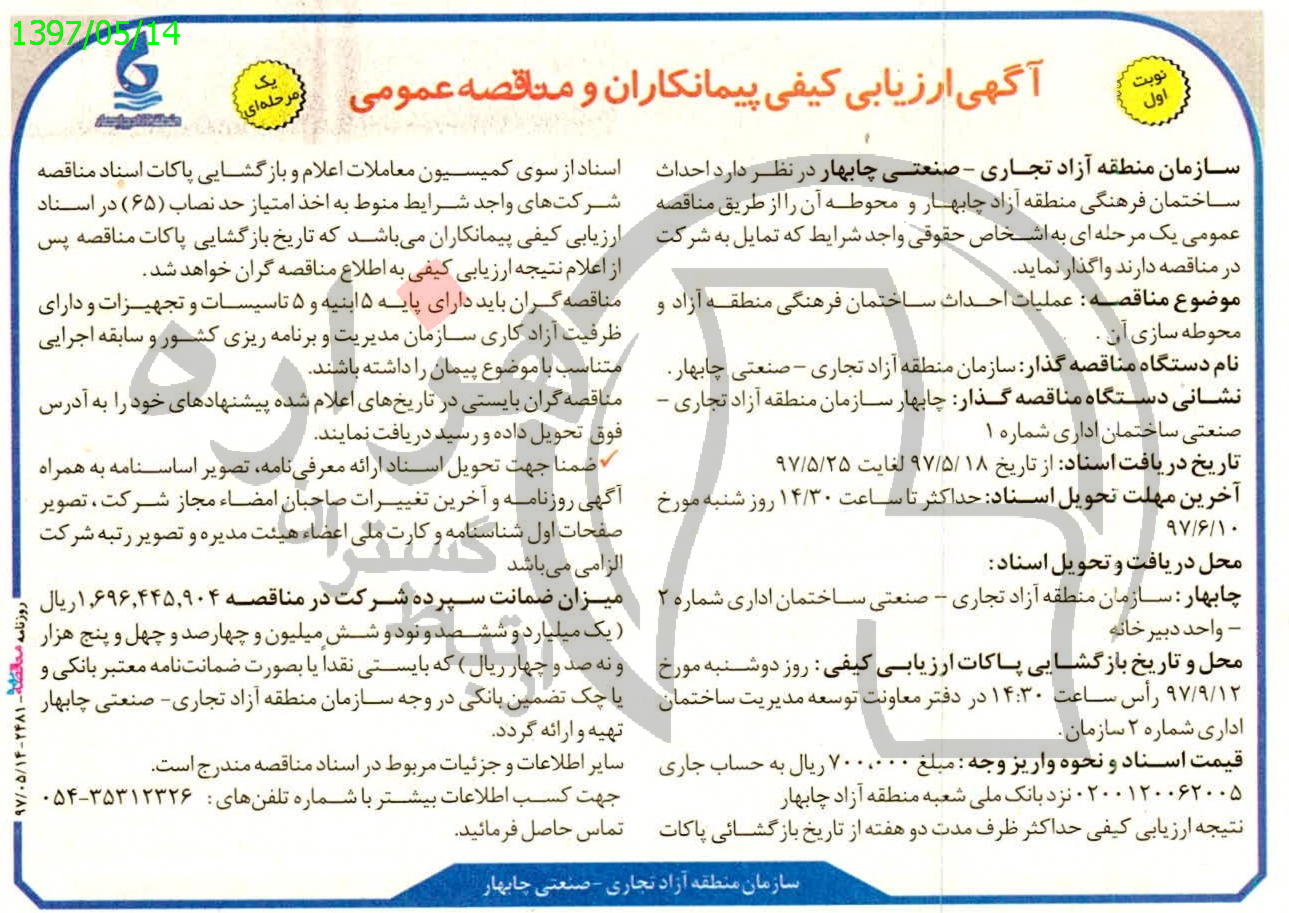 1397/05/14
نوبت
اول
آگهی ارزیابی کیفی پیمانکاران و مناقصه عمومی
یک
مرحله‌ای
سازمان منطقه آزاد تجاری - صنعتی چابهار در نظر دارد احداث
ساختمان فرهنگی منطقه آزاد چابهار و محوطه آن را از طریق مناقصه
عمومی یک مرحله ای به اشخاص حقوقی واجد شرایط که تمایل به شرکت
در مناقصه دارند واگذار نماید.
موضوع مناقصه : عملیات احداث ساختمان فرهنگی منطقه آزاد و
محوطه سازی آن .
نام دستگاه مناقصه گذار: سازمان منطقه آزاد تجاری - صنعتی چابهار .
نشانی دستگاه مناقصه گذار: چابهار سازمان منطقه آزاد تجاری -
صنعتی ساختمان اداری شماره ۱
تاریخ دریافت اسناد: از تاریخ ۹۷/۵/۱۸ لغایت ۹۷/۵/۲۵
آخرین مهلت تحویل اسناد: حداکثر تا ساعت ۱۴/۳۰ روز شنبه مورخ
۹۷/۶/۱۰
محل دریافت و تحویل اسناد:
چابهار : سازمان منطقه آزاد تجاری - صنعتی ساختمان اداری شماره ۲
- واحد دبیرخانه
محل و تاریخ بازگشایی پاکات ارزیابی کیفی : روز دوشنبه مورخ
۹۷/۹/۱۲ رأس ساعت ۱۴:۳۰ در دفتر معاونت توسعه مدیریت ساختمان
اداری شماره ۲ سازمان .
قیمت اسناد و نحوه واریز وجه : مبلغ ۷۰۰،۰۰۰ ریال به حساب جاری
۰۲۰۰۱۲۰۰۶۲۰۰۵ نزد بانک ملی شعبه منطقه آزاد چابهار
نتیجه ارزیابی کیفی حداکثر ظرف مدت دو هفته از تاریخ بازگشائی پاکات
اسناد از سوی کمیسیون معاملات اعلام و بازگشایی پاکات اسناد مناقصه
شرکت‌های واجد شرایط منوط به اخذ امتیاز حد نصاب (۶۵) در اسناد
ارزیابی کیفی پیمانکاران می‌باشد که تاریخ بازگشایی پاکات مناقصه پس
از اعلام نتیجه ارزیابی کیفی به اطلاع مناقصه گران خواهد شد .
مناقصه‌گران باید دارای پایه ۵ ابنیه و ۵ تاسیسات و تجهیزات و دارای
ظرفیت آزاد کاری سازمان مدیریت و برنامه ریزی کشور و سابقه اجرایی
متناسب با موضوع پیمان را داشته باشند.
مناقصه‌گران بایستی در تاریخ‌های اعلام شده پیشنهادهای خود را به آدرس
فوق تحویل داده و رسید دریافت نمایند.
✓ ضمنا جهت تحویل اسناد ارائه معرفی‌نامه، تصویر اساسنامه به همراه
آگهی روزنامه و آخرین تغییرات صاحبان امضاء مجاز شرکت ، تصویر
صفحات اول شناسنامه و کارت ملی اعضاء هیئت مدیره و تصویر رتبه شرکت
الزامی می‌باشد
میزان ضمانت سپرده شرکت در مناقصه ۱,۶۹۶,۴۴۵,۹۰۴ ریال
( یک میلیارد و ششصد و نود و شش میلیون و چهارصد و چهل و پنج هزار
و نه صد و چهار ریال ) که بایستی نقداً یا بصورت ضمانت‌نامه معتبر بانکی و
یا چک تضمین بانکی در وجه سازمان منطقه آزاد تجاری- صنعتی چابهار
تهیه و ارائه گردد.
سایر اطلاعات و جزئیات مربوط در اسناد مناقصه مندرج است.
جهت کسب اطلاعات بیشتر با شماره تلفن‌های : ۳۵۳۱۲۳۲۶-۰۵۴
تماس حاصل فرمائید.
سازمان منطقه آزاد تجاری - صنعتی چابهار
روزنامه مناقصه - ۲۴۸۱ - ۹۷/۰۵/۱۴
هزاره
گستران
ارتباط